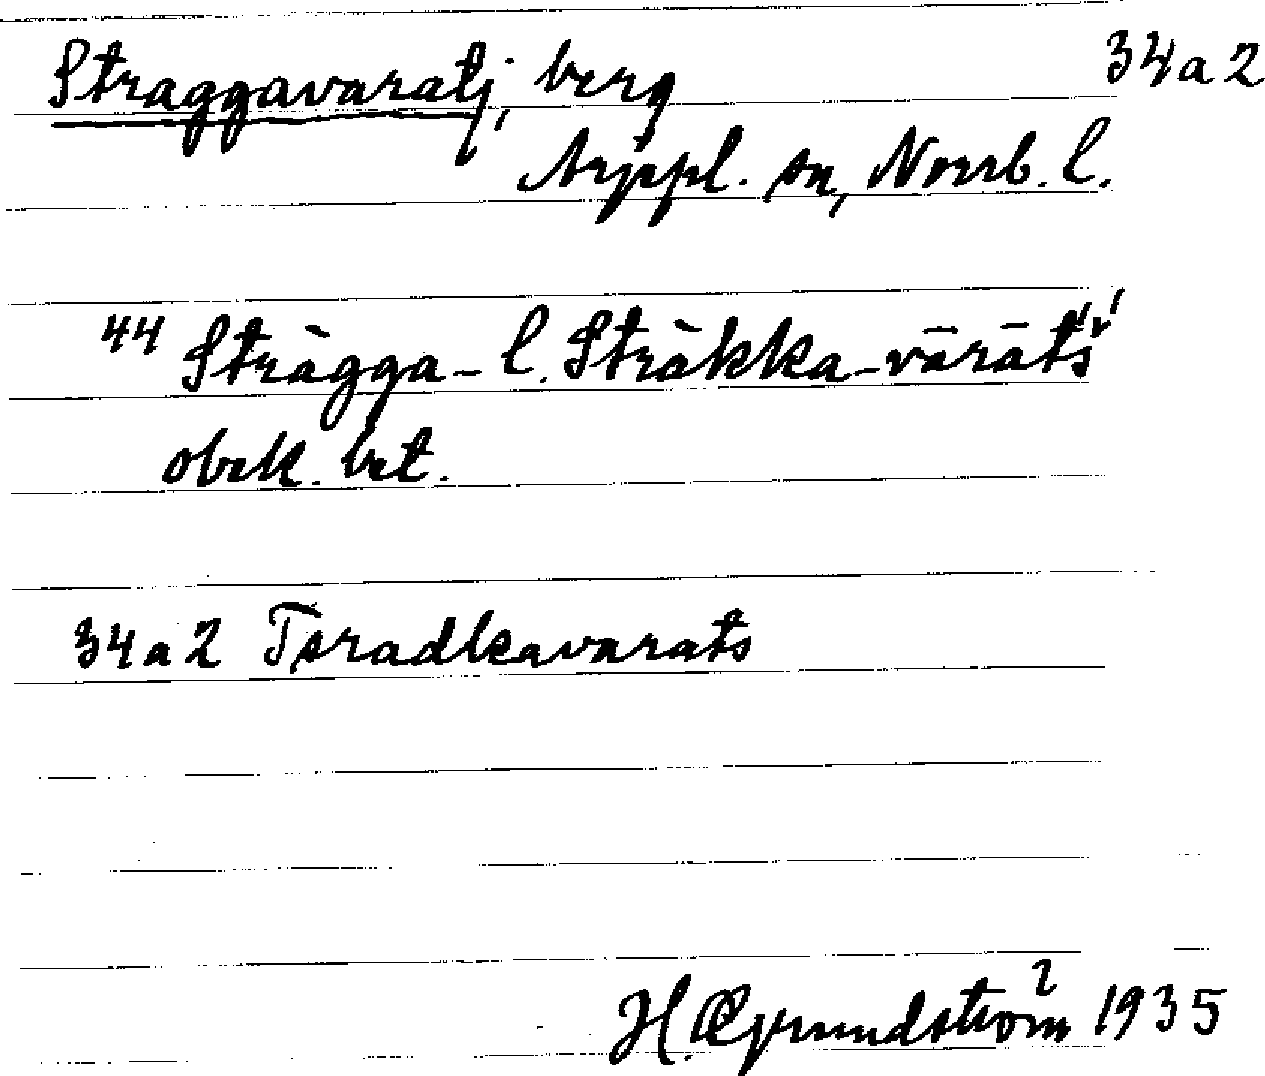 Straggavaratj, berg 34a2
Arjepl. sn, Norrb. l.
44 Stràgga- l. Stràkka-vārāt́š́
obek. bet.
34a2 Tsradkavarats
H. Grundström 1935